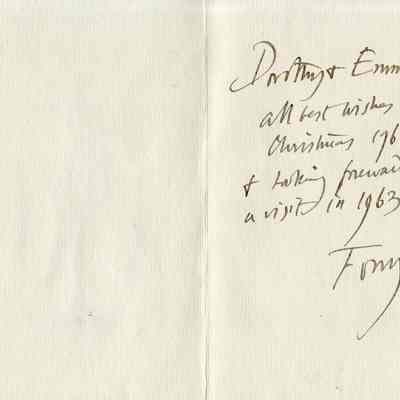 Dorothy & Emm
all best wishes
Christmas 196
& looking forward
a visit in 1963